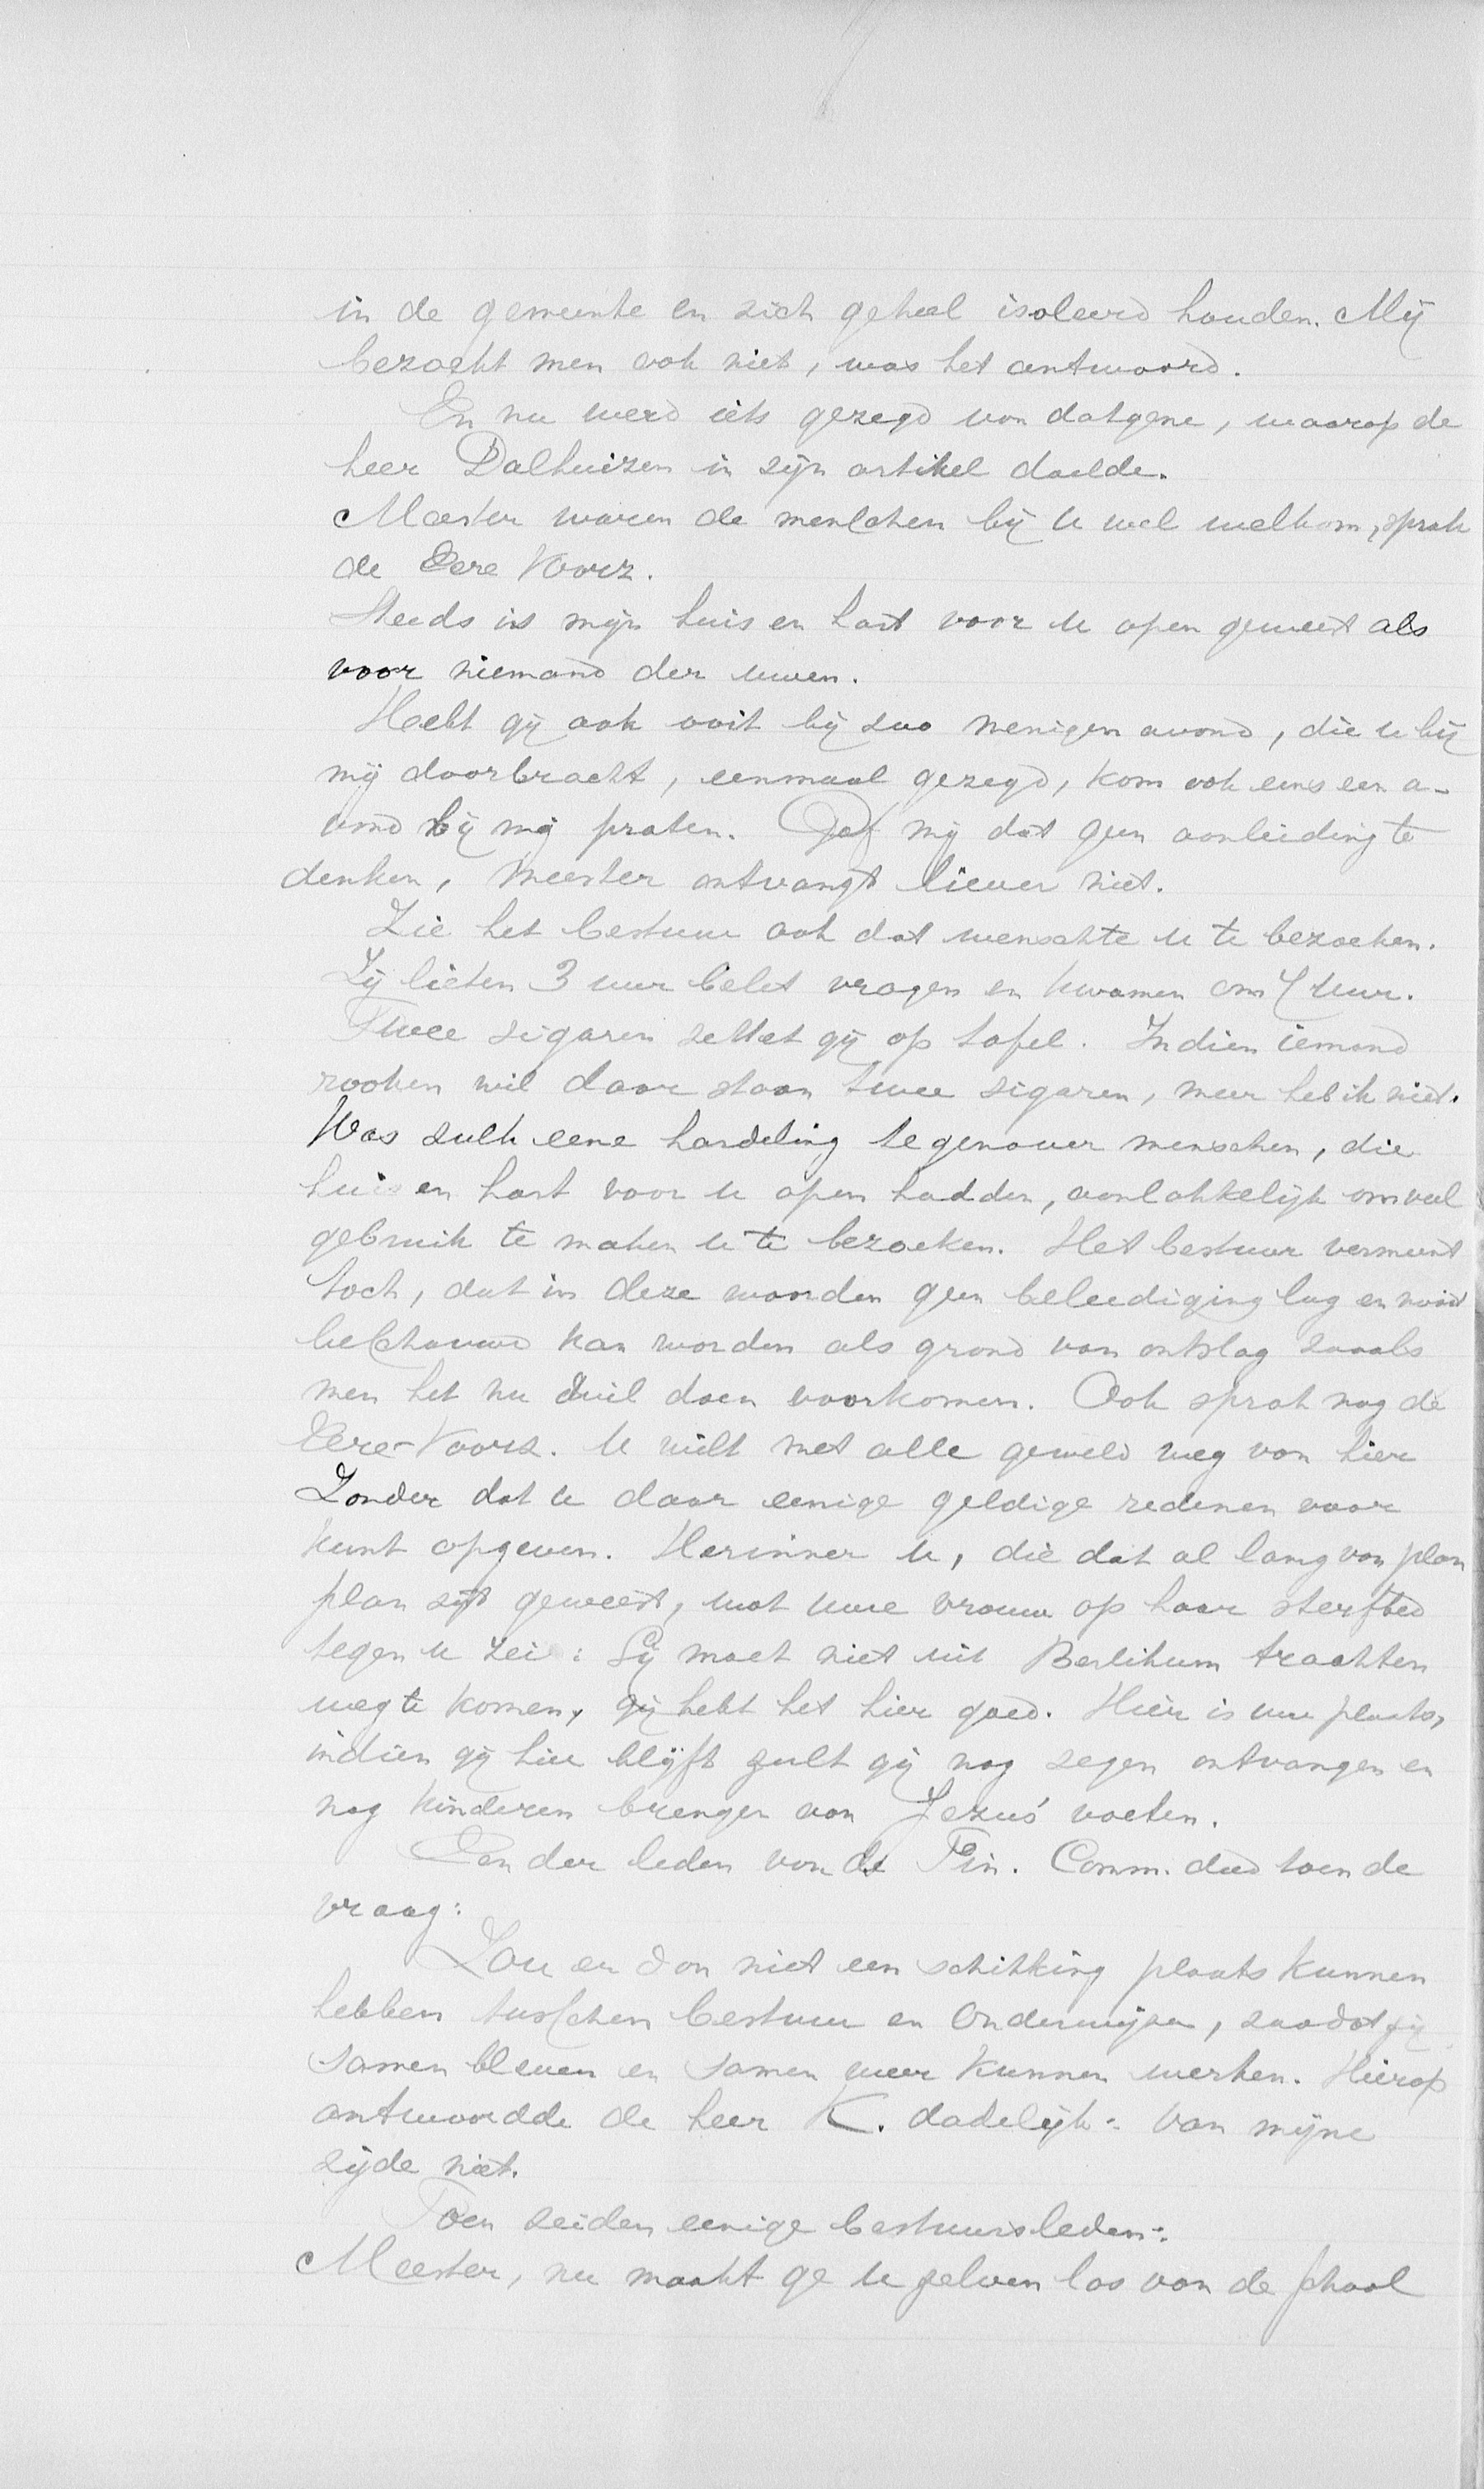 in de gemeente en zich geheel isoleerd houden. Mij
bezocht men ook niet, was het antwoord.
En nu werd iets gezegd van datgene, waarop de
heer Dalhuizen in zijn artikel doelde.
Meester waren de menschen bij u wel welkom, sprak
de Eere Voorz.
Steeds is mijn huis en hart voor u open geweest als
voor niemand der uwen.
Hebt gij ook ooit bij zoo menigen avond, die u bij
mij doorbracht, eenmaal gezegd, kom ook eens een a-
vond bij mij praten. Gaf mij dat geen aanleiding te
denken, meester ontvangt liever niet.
Zie het bestuur ook dat wenschte u te bezoeken.
Zij lieten 3 uur belet vragen en kwamen om 7 uur.
Twee sigaren zettet gij op tafel. Indien iemand
rooken wil daar staan twee sigaren, meer heb ik niet.
Was zulk eene handeling tegenover menschen, die
huis en hart voor u open hadden, aanlokkelijk om veel
gebruik te maken u te bezoeken. Het bestuur vermeent
toch, dat in deze woorden geen beleediging lag en nooit
beschouwd kan worden als grond van ontslag zooals
men het nu wil doen voorkomen. Ook sprak nog de
Eere-Voorz. U wilt met alle geweld weg van hier
Zonder dat u daar eenige geldige redenen voor
kunt opgeven. Herinner u, die dat al lang van plan
plan zijt geweest, wat uwe vrouw op haar sterfbed
tegen u zei: Gij moet niet uit Berlikum trachten
weg te komen, gij hebt het hier goed. Hier is uw plaats,
indien gij hier blijft zult gij nog zegen ontvangen en
nog kinderen brengen aan Jezus' voeten.
Een der leden van de Fin. Comm. deed toen de
vraag:
Zou er dan niet een schikking plaats kunnen
hebben tusschen bestuur en Onderwijzer, zoodat zij
samen bleven en samen weer kunnen werken. Hierop
antwoordde de heer K. dadelijk: Van mijne
zijde niet.
Toen zeiden eenige bestuursleden:
Meester, nu maakt ge u zelven los van de school